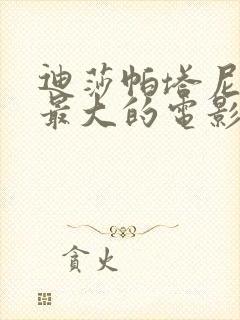 迪莎帕塔尼
最大的电影
贪火